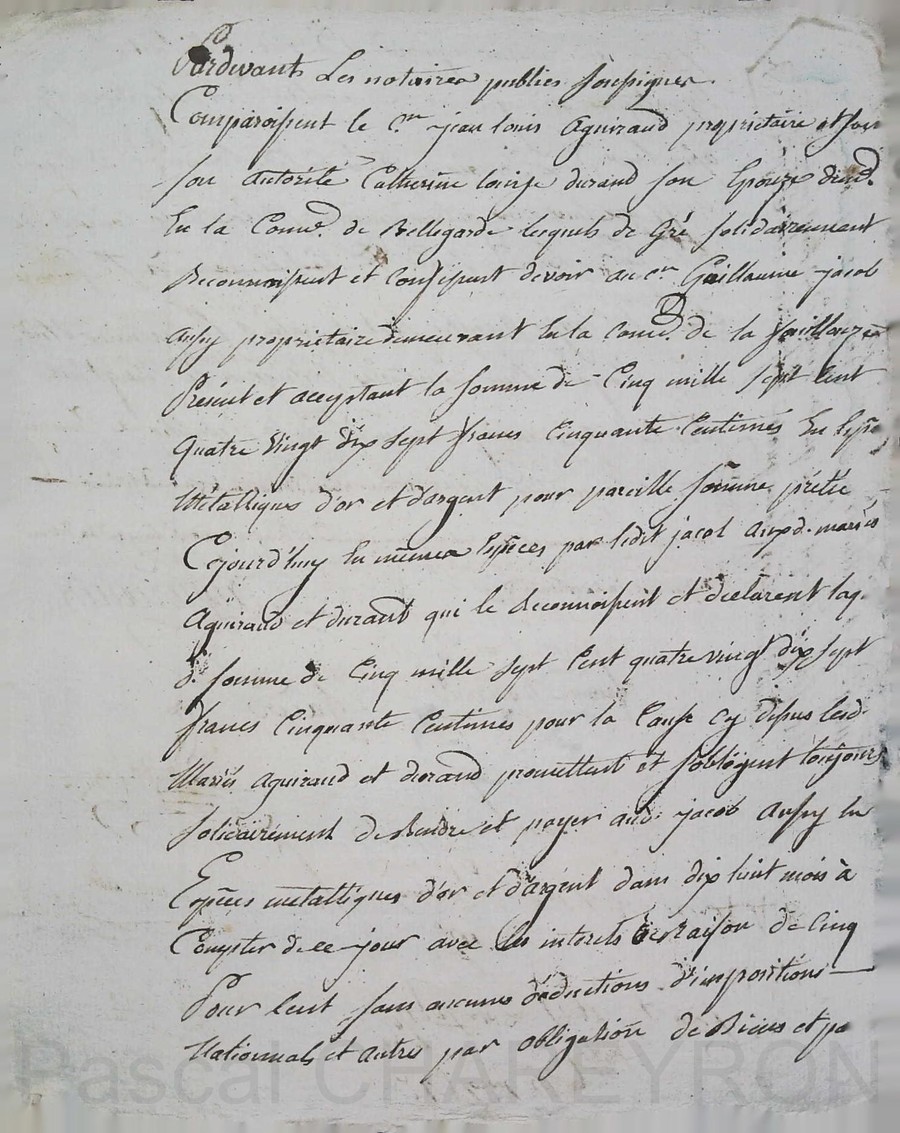 Pardevant Les notaires publics soussignes
Comparoissent le C.en jean louis aguiraud proprietaire et sous
son autorité Catherine louise durand son Epouze dem.t
En la Comm.e de Bellegarde lesquels de Gré solidairement
Reconnoissent et Confessent devoir au c.en Guillaume jacob
proprietaire demeurant En la Com.e de la fouillouze
Présent et acceptant la somme de Cinq mille sept Cent
quatre vingt dix sept francs Cinquante Centimes En Espe
Métalliques d'or et d'argent pour pareille somme prétée
Cejourd'huy En memes Espèces par ledit jacob auxd. mariés
Aguiraud et durand qui le Reconnoissent et déclarent laq.
d. somme de Cinq mille sept Cent quatre vingt dix sept
francs Cinquante Centimes pour la Cause Cy desus lesd.
Mariés aguiraud et durand promettent et s'obligent toujours
solidairement de Rendre et payer aud. jacob En
Espèces metalliques d'or et d'argent dans dix huit mois à
Compter de ce jour avec les interets de Raison de Cinq
Pour Cent sans aucunes déductions d'impositions
Nationnals et autres par obligation de Biens et pa
Pascal CHAREYRON